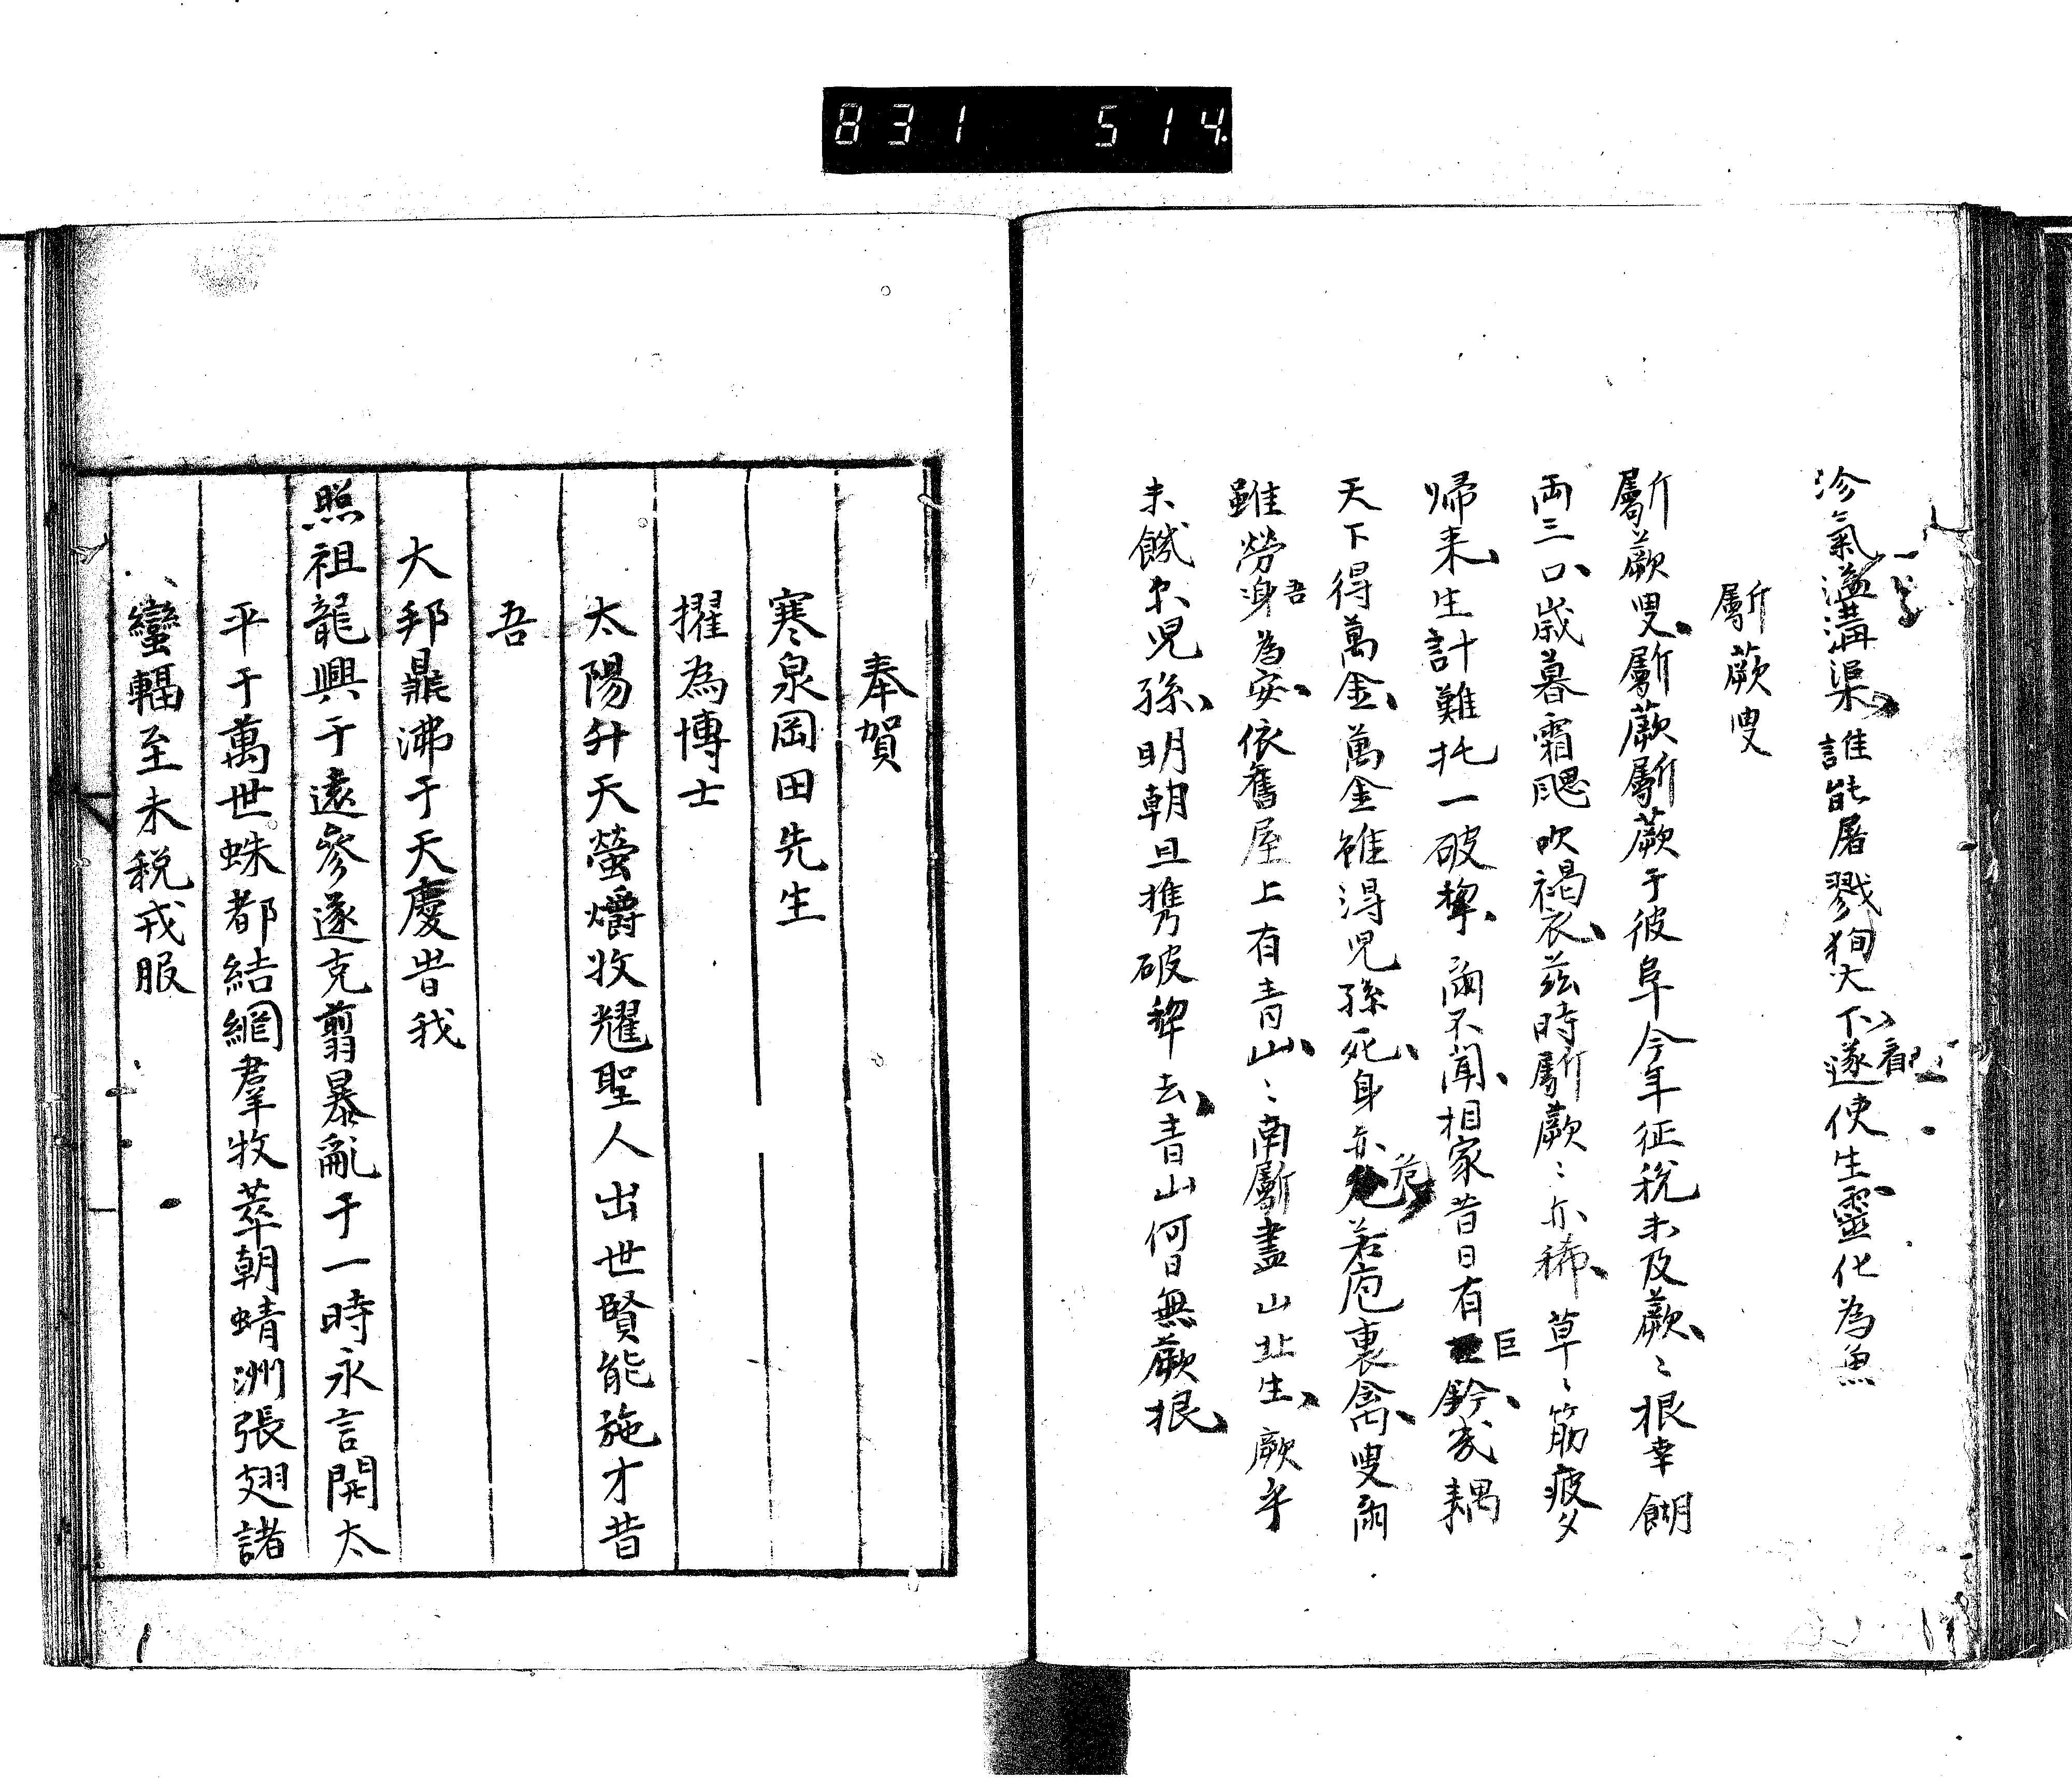 831 514
沴氣溢溝渠誰能屠戮狗犬不遂使生靈化為魚
看
斸蕨叟
斸蕨叟斸蕨斸蕨于彼阜今年征稅未及蕨〻根幸餬
両三口歲暮霜颸吹褐衣茲時斸蕨〻亦稀草〻筋疲
歸来生計難托一破犂爾不聞相家昔日有巨鈴
天下得萬金萬金雖得児孫死身亦危若庖裏禽叟爾
雖勞身吾為安依舊屋上有青山〻南斸盡山北生蕨乎
未餓未児孫明朝且携破犂去青山何日無蕨根
奉賀
寒泉岡田先生
擢為博士
太陽升天螢爝收耀聖人出世賢能施才昔
吾
大邦鼎沸于天慶昔我
照祖龍興于遠參遂克翦暴亂于一時永言開太
平于萬世蛛都結網羣牧萃朝蜻洲張翅諸
蠻輻至未稅戎服